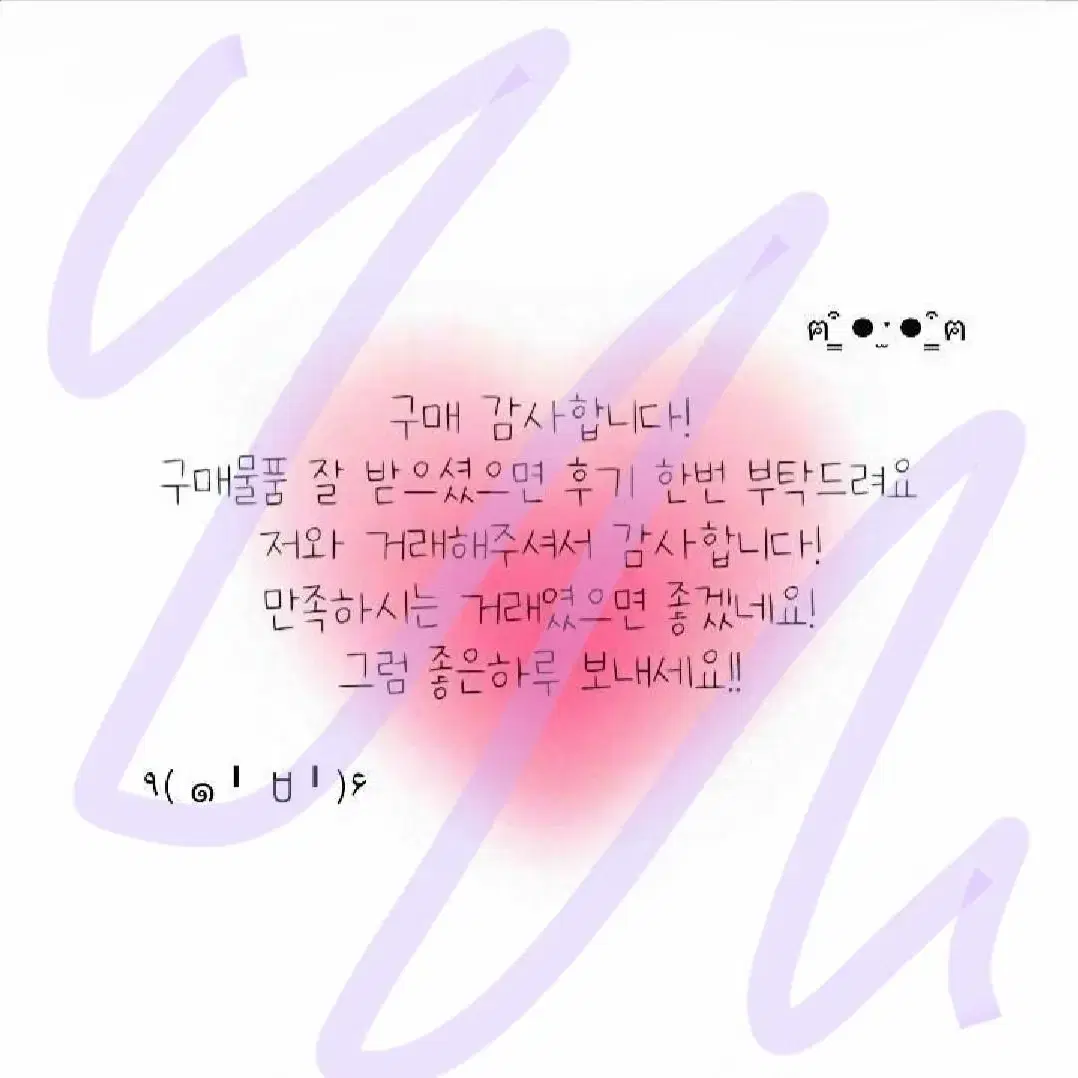 ฅ^̳͒●·̫●^̳͒ฅ
구매 감사합니다!
구매물품 잘 받으셨으면 후기 한번 부탁드려요
저와 거래해주셔서 감사합니다!
만족하시는 거래였으면 좋겠네요!
그럼 좋은하루 보내세요!!
٩( ๑╹ ꇴ╹)۶